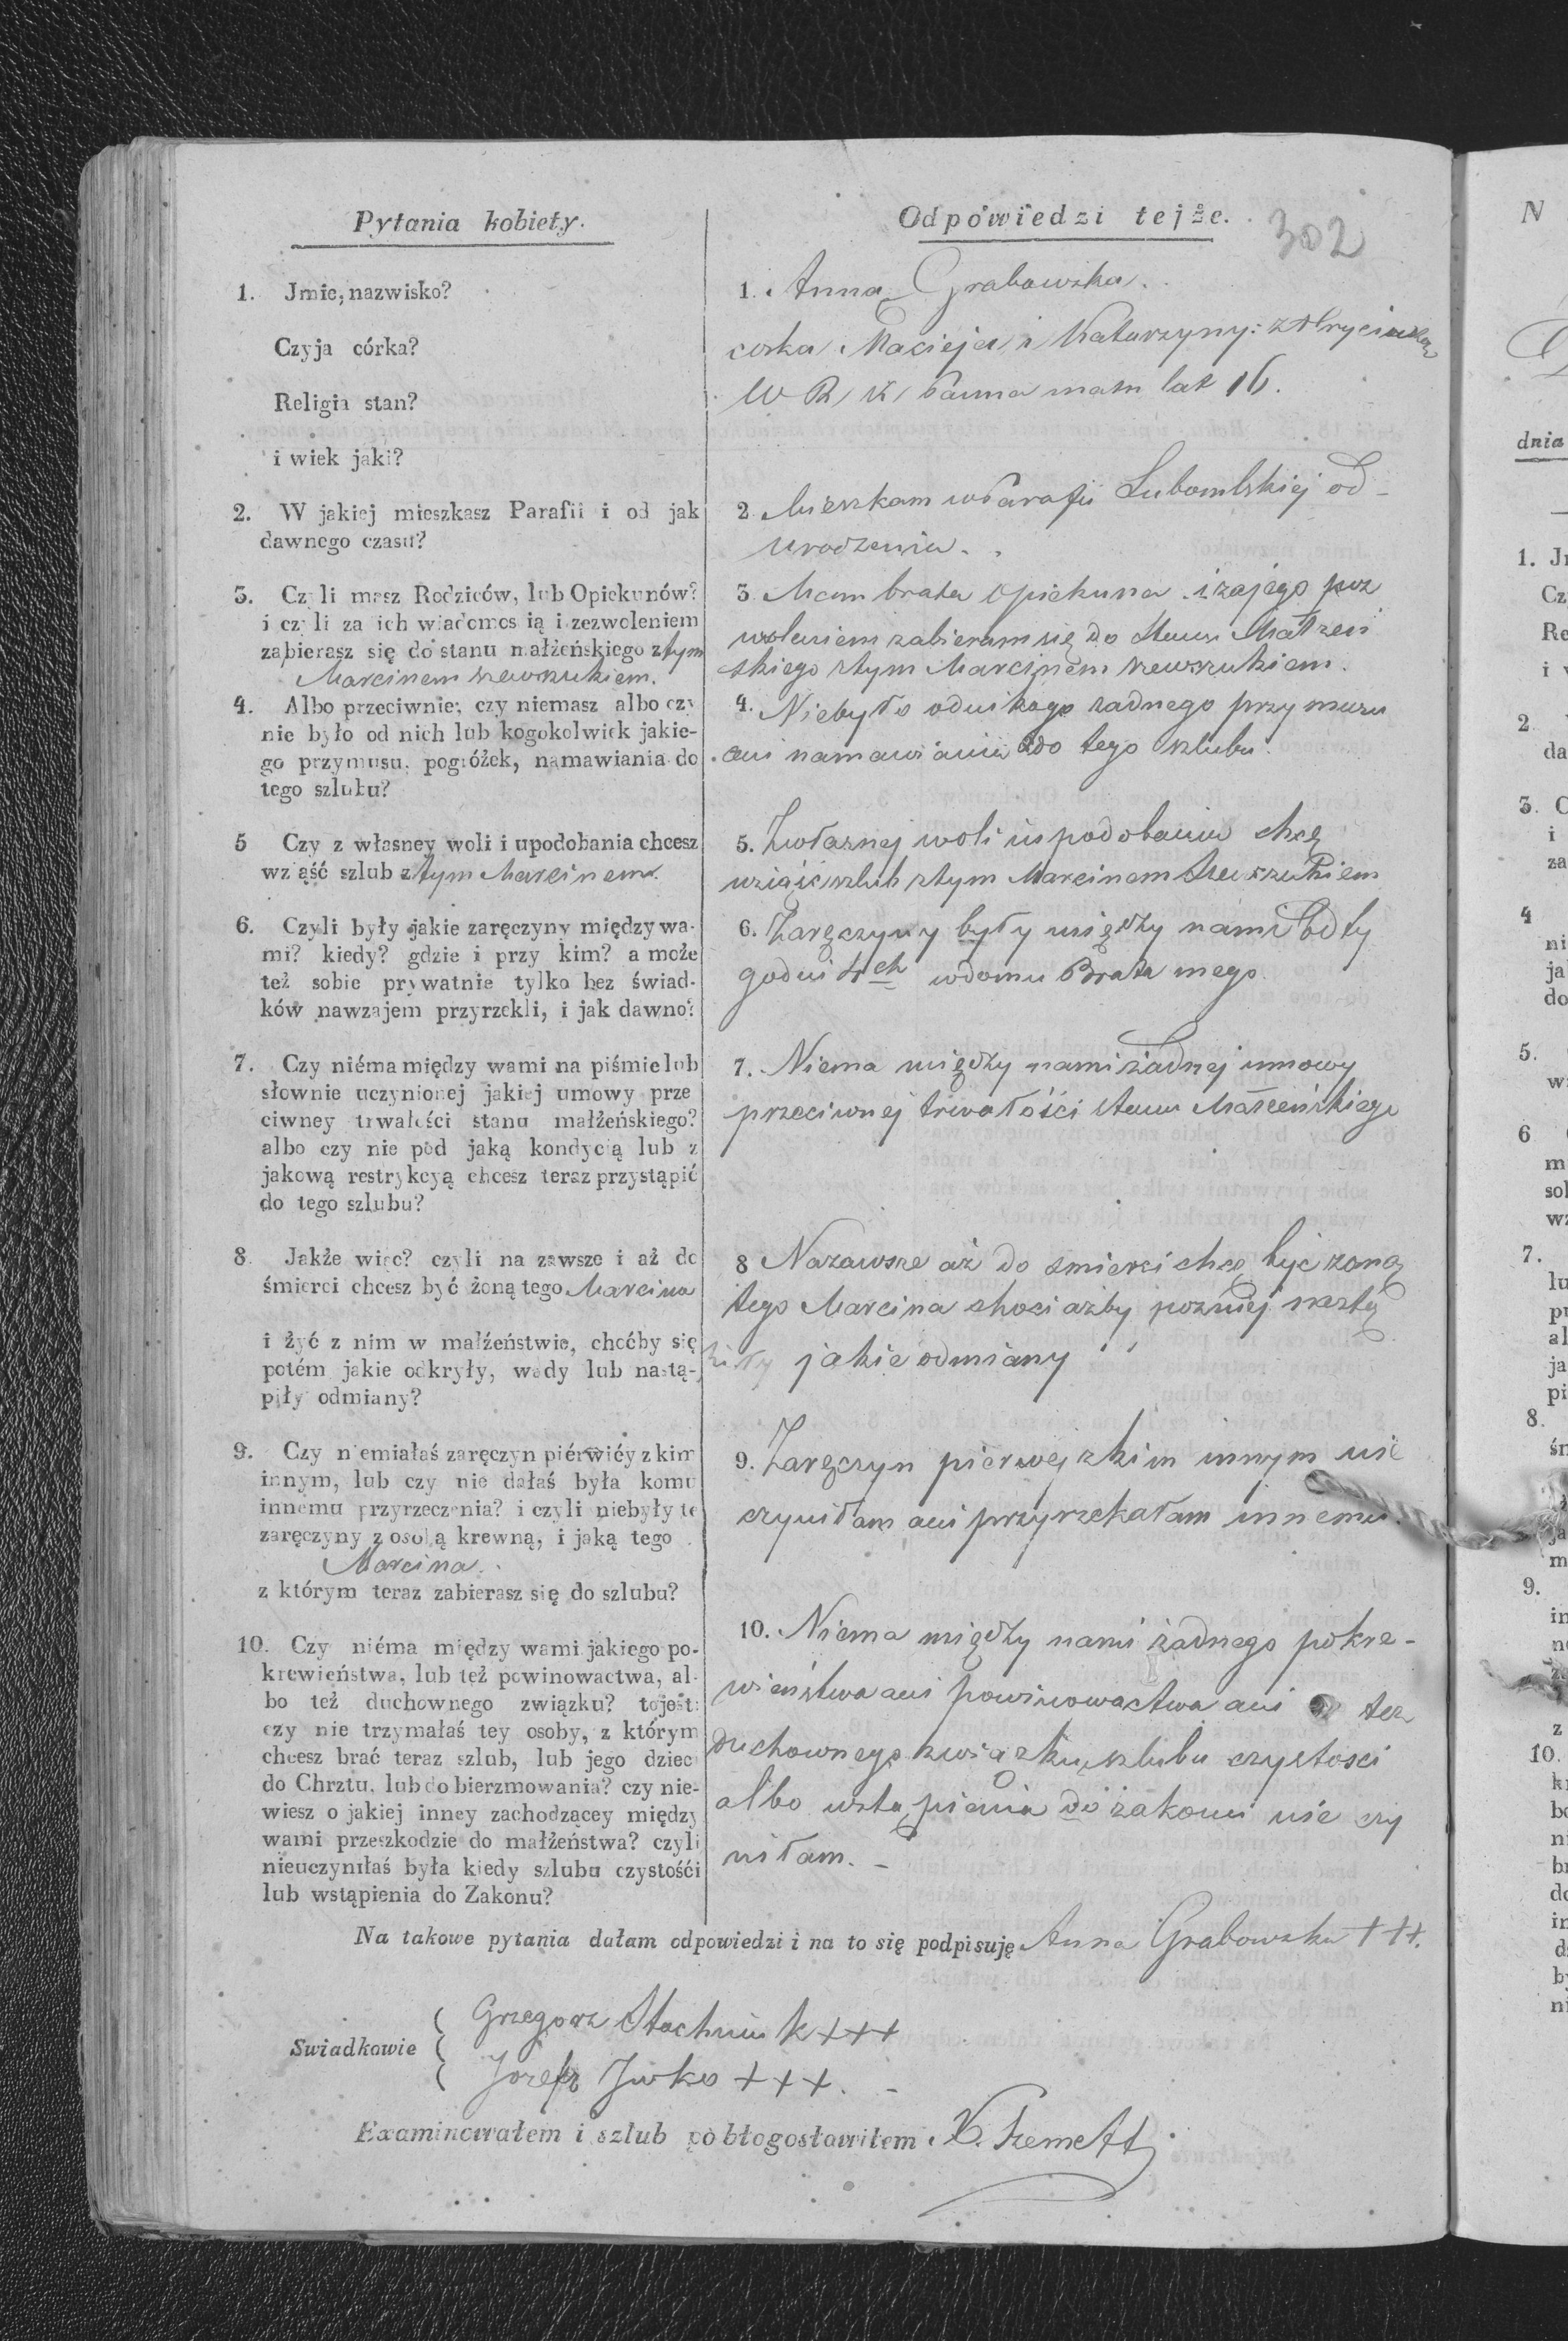 Pytania kobiety.
Odpowiedzi tejże.
302
1. Jmie, nazwisko?
Czyja córka?
Religia stan?
i wiek jaki?
1. Anna Grabowska.
corka Macieja i Katarzyny:
W R K Panna mam lat 16.
2. W jakiej mieszkasz Parafii i od jak
dawnego czasu?
2 Mieszkam w Parafii Lubomlskiej od-
urodzenia.
3. Czyli masz Rodziców, lub Opiekunów?
i czyli za ich wiadomością i zezwoleniem
zabierasz się do stanu małżeńskiego z tym
Marcinem
3 Mam brata Opiekuna i zajego poz
woleniem zabieram się do Stanu Małżeń
skiego ztym Marcinem
4. Albo przeciwnie, czy niemasz albo czy
nie było od nich lub kogokolwiek jakie-
go przymusu, pogróżek, namawiania do
tego szlubu?
4. Niebyło odnikogo żadnego przymusu
ani namawiania do tego szlubu.
5 Czy z własney woli i upodobania chcesz
wziąść szlub z tym Marcinem.
5. Zwłasnej woli i upodobania chcę
wziąść szlub ztym Marcinem
6. Czyli były jakie zaręczyny między wa-
mi? kiedy? gdzie i przy kim? a może
też sobie prywatnie tylko bez świad-
ków nawzajem przyrzekli, i jak dawno?
6. Zaręczyny były między nami od ty
godni 4ch wdomu Brata mego
7. Czy niéma między wami na piśmie lub
słownie uczynionej jakiej umowy prze
ciwney trwałości stanu małżeńskiego?
albo czy nie pod jaką kondycią lub z
jakową restrykcyą chcesz teraz przystąpić
do tego szlubu?
7. Niema między nami żadnej umowy
przeciwnej trwałości stanu Małżeńskiego
8. Jakże więc? czyli na zawsze i aż do
śmierci chcesz być żoną tego Marcina
i żyć z nim w małżeństwie, choćby się
potém jakie odkryły, wady lub nastą-
piły odmiany?
8 Nazawsze aż do smierci chcę być żoną
tego Marcina chociażby pozniej nastą
piły jakie odmiany
9. Czy niemiałaś zaręczyn piérwićy z kim
innym, lub czy nie dałaś była komu
innemu przyrzeczenia? i czyli niebyły te
zaręczyny z osobą krewną, i jaką tego
Marcina.
z którym teraz zabierasz się do szlubu?
9. Zaręczyn pierwej zkim innym nie
czyniłam ani przyrzekałam innemu.
10. Czy niéma między wami jakiego po-
krewieństwa, lub też powinowactwa, al-
bo też duchownego związku? to jest:
czy nie trzymałaś tey osoby, z którym
chcesz brać teraz szlub, lub jego dzieci
do Chrztu, lub do bierzmowania? czy nie-
wiesz o jakiej inney zachodzącey między
wami przeszkodzie do małżeństwa? czyli
nieuczyniłaś była kiedy szlubu czystośći
lub wstąpienia do Zakonu?
10. Niema między nami żadnego pokre-
wieństwa ani powinowactwa ani tez
duchownego związku, szlubu czystosci
albo wstąpienia do zakonu nie czy
niłam. -
Na takowe pytania dałam odpowiedzi i na to się podpisuję Anna Grabowska +++.
Swiadkowie
Grzegorz Stachniuk +++
Jozef +++.
Examinowałem i szlub pobłogosławiłem X.
N
dnia